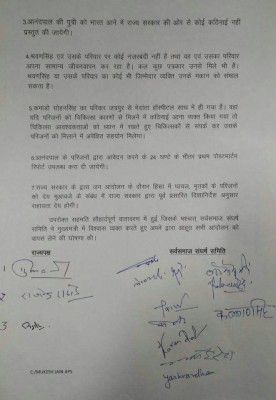 3.आनंदपाल की पुत्री को भारत आने में राज्य सरकार की ओर से कोई कठिनाई नहीं
प्रस्तुत की जायेगी।
4.भवरसिंह एवं उसके परिवार पर कोई नजरबंदी नहीं है तथा वह एवं उसका परिवार
अपना सामान्य जीवनयापन कर रहा है। कल कुछ पत्रकार उनसे मिले भी है।
भवरसिंह या उसके परिवार का कोई भी जिम्मेदार व्यक्ति उनके मकान को संभाल
सकता है।
5.कमांडो सोहनसिंह का परिवार जयपुर से मेदांता हॉस्पीटल साथ में ही गया है। वहां
यदि परिजनों को चिकित्सा कारणों से मिलने में कठिनाई आना व्यक्त किया गया तो
चिकित्सा आवश्यकताओं को ध्यान में रखते हुए चिकित्सकों से संपर्क कर उसके
परिजनों को मिलाने में अपेक्षित सहयोग मिलेगा।
6.आनंदपाल के परिजनों द्वारा आवेदन करने के 24 घण्टे के भीतर प्रथम पोस्टमार्टम
रिपोर्ट उपलब्ध करा दी जायेगी।
7.राज्य सरकार के द्वारा जन आंदोलन के दौरान हिंसा में घायल, मृतकों के परिजनों
को देय मुआवजे के संबंध में राज्य सरकार द्वारा पूर्व प्रसारित दिशानिर्देश अनुसार
सहायता देय होगी।
उपरोक्त सहमति सौहार्दपूर्ण वातावरण में हुई जिसके पश्चात सर्वसमाज संघर्ष
समिति ने मुख्यमंत्री में विश्वास व्यक्त करते हुए अपने द्वारा आहूत सभी आन्दोलन को
वापस लेने की घोषणा की।
राज्यपक्ष
सर्वसमाज संघर्ष समिति
1
2
3
C/MUKESH JAIN APS